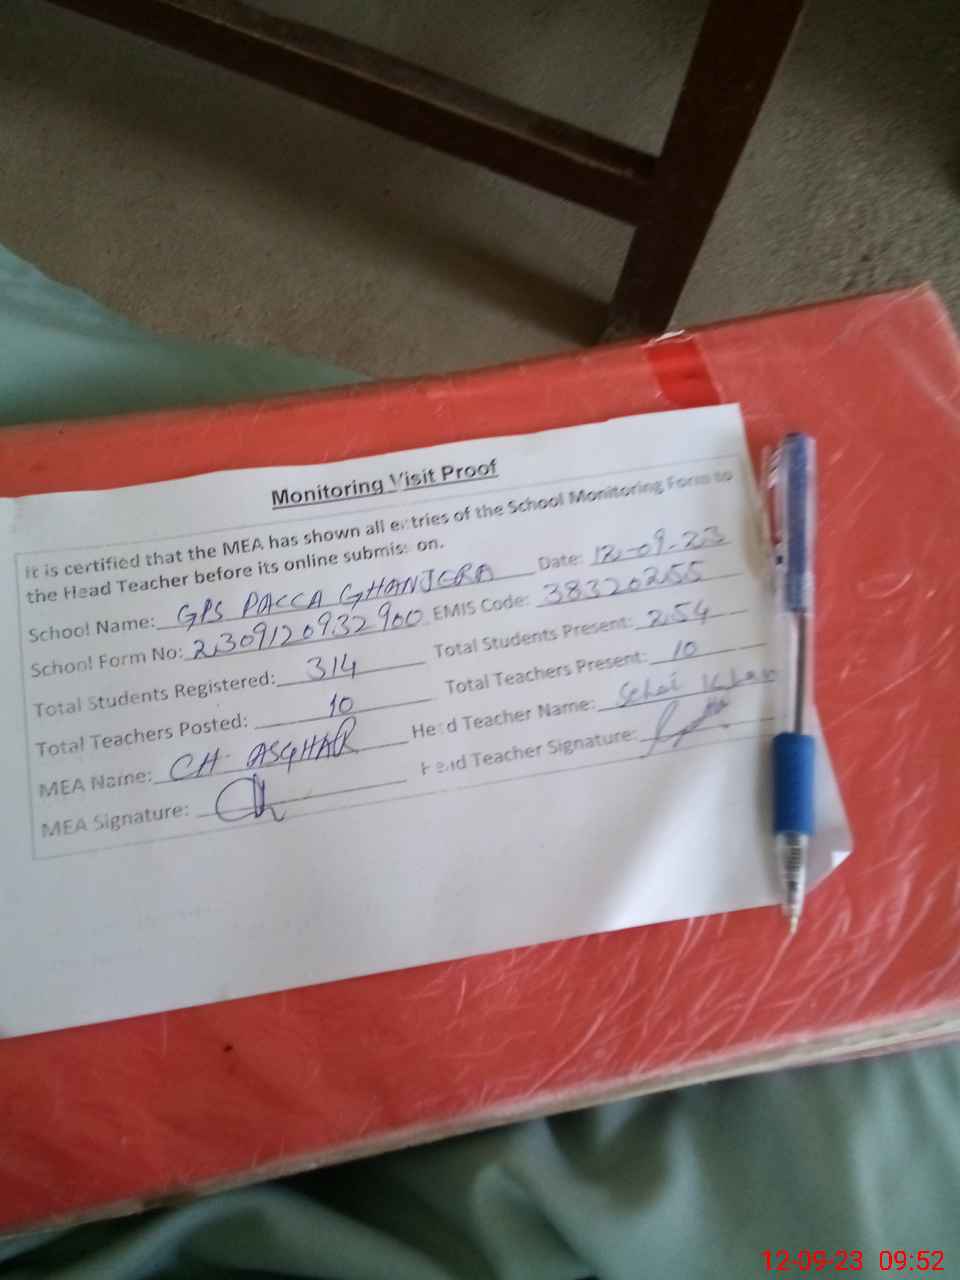 Monitoring Visit Proof
It is certified that the MEA has shown all entries of the School Monitoring Form to
the Head Teacher before its online submission.
School Name: GPS PACCA GHANJERA Date: 12-09-23
School Form No: 2309120932900 EMIS Code: 38320255
Total Students Registered: 314 Total Students Present: 254
Total Teachers Posted: 10 Total Teachers Present: 10
MEA Name: CH. ASGHAR Head Teacher Name: Khan
MEA Signature: Head Teacher Signature:
12-09-23 09:52